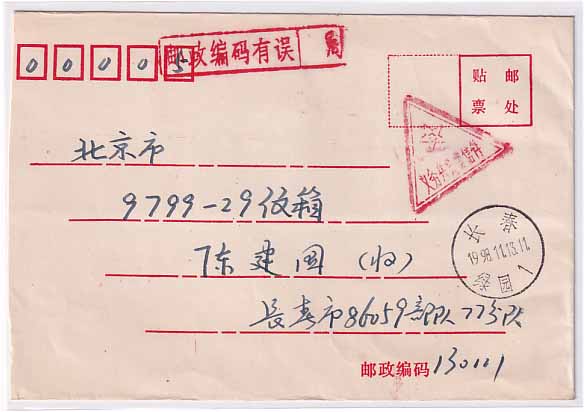 邮政编码有误
0 0 0 0 5
贴 邮
票 处
义务兵免费信件
北京市
9799-29信箱
陈建国(收)
长春
1998.11.13.11
园 1
长春市86059部队773队
邮政编码 130111